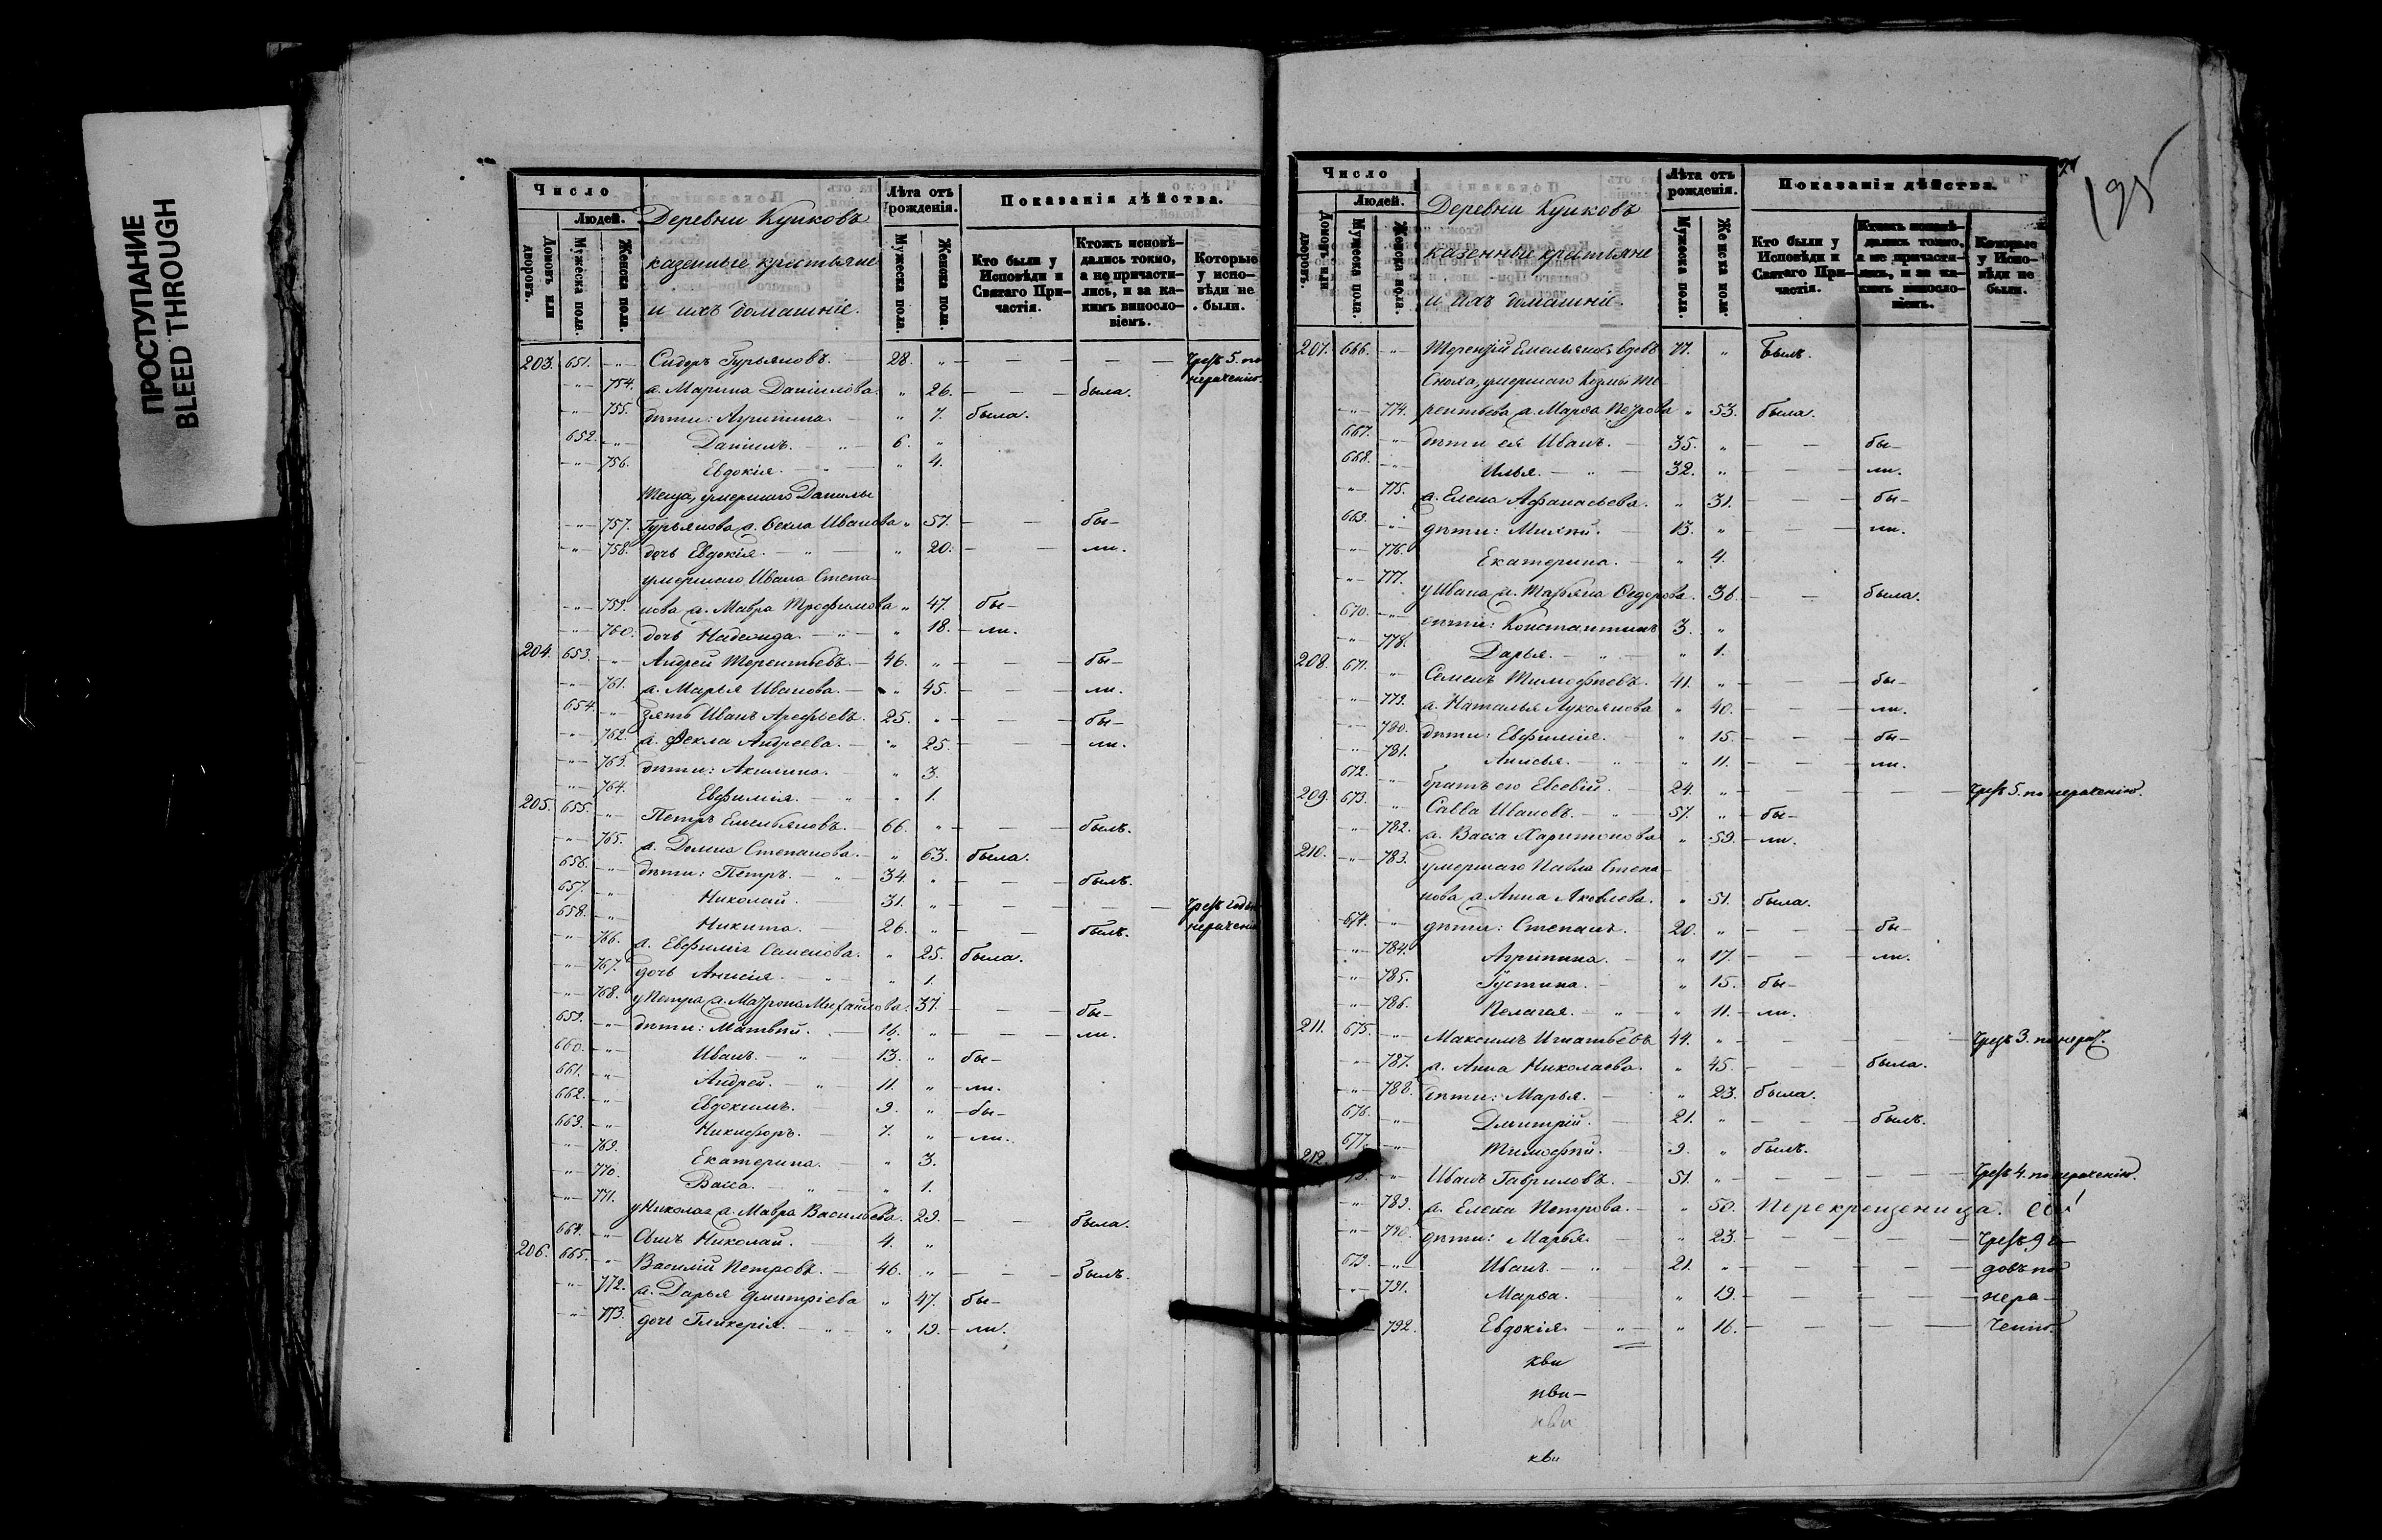 ПРОСТУПАНИЕ
BLEED THROUGH
Число
Людей.
Домовъ или дворовъ.
Мужеска пола.
Женска пола.
Деревни Куяковъ
казенные крестьяне
и ихъ домашніе.
Лѣта отъ рожденія.
Мужеска пола.
Женска пола.
Показанія дѣйства.
Кто были у Исповѣди и Святаго Причастія.
Ктожъ исповѣдались токмо, а не причастились, и за какимъ винословіемъ.
Которые у исповѣди не были.
203. 651. -"- Сидоръ Гурьяновъ. 28. " Чрезъ 5. по
-"- 754. а. Марина Даніилова. " 26. была. нераченію.
-"- 755. дѣти: Агрипина. " 7. была.
652. -"- Даніилъ. 6. "
-"- 756. Евдокія. " 4.
Теща, умершаго Данилы
-"- 757. Гурьянова а. Ѳекла Иванова " 57. бы-
-"- 758. дочь Евдокія. " 20. ли.
умершаго Ивана Степа-
-"- 759. нова а. Мавра Трофимова " 47. бы-
-"- 760. дочь Надежда. " 18. ли.
204. 653. -"- Андрей Терентьевъ. 46. " бы-
-"- 761. а. Марья Иванова. " 45. ли.
654. -"- зять Иванъ Арефьевъ. 25. " бы-
-"- 762. а. Фекла Андреева. " 25. ли.
-"- 763. дѣти: Акилина. " 3.
-"- 764. Евфимія. " 1.
205. 655. -"- Петръ Емельяновъ. 66. " былъ.
-"- 765. а. Домна Степанова. " 63. была.
656. -"- дѣти: Петръ. 34. " былъ.
657. -"- Николай. 31. " Чрезъ
658. -"- Никита. 26. " былъ. нераченію
-"- 766. а. Евфимія Семенова. " 25. была.
-"- 767. дочь Анисія. " 1.
-"- 768. у Петра а. Матрона Михайлова. 37. бы-
659. -"- дѣти: Матвѣй. 16. " ли.
660. -"- Иванъ. 13. " бы-
661. -"- Андрей. 11. " ли.
662. -"- Евдокимъ. 9. " бы-
663. -"- Никифоръ. 7. " ли.
-"- 769. Екатерина. " 3.
-"- 770. Васса. " 1.
-"- 771. у Николая а. Мавра Васильева. 29. была.
664. -"- Сынъ Николай. 4. "
206. 665. -"- Василій Петровъ. 46. " былъ.
-"- 772. а. Дарья Дмитріева " 47. бы-
-"- 773. дочь Гликерія. " 19. ли.
195
Число
Людей.
Домовъ или дворовъ.
Мужеска пола.
Женска пола.
Деревни Куяковъ
казенные крестьяне
и ихъ домашніе.
Лѣта отъ рожденія.
Мужеска пола.
Женска пола.
Показанія дѣйства.
Кто были у Исповѣди и Святаго Причастія.
Ктожъ исповѣдались токмо, а не причастились, и за какимъ винословіемъ.
Которые у Исповѣди не были.
207. 666. -"- Терентій Емельяновъ вдовъ 77. " Былъ.
Сноха, умершаго Козмы Те-
-"- 774. рентьева а. Марѳа Петрова " 53. была.
667. -"- дѣти ея Иванъ. 35. " бы-
668. -"- Илья. 32. " ли.
-"- 775. а. Елена Афанасьева. " 31. бы-
669. -"- дѣти: Михей. 13. " ли.
-"- 776. Екатерина. " 4.
-"- 777. у Ивана а. Татьяна Ѳедорова. 36. была.
670. -"- дѣти: Константинъ 3. "
-"- 778. Дарья. " 1.
208. 671. -"- Семенъ Тимофѣевъ. 41. " бы-
-"- 779. а. Наталья Лукоянова " 40. ли.
-"- 780. дѣти: Евфимія. " 15. бы-
-"- 781. Анисья. " 11. ли.
672. -"- братъ его Евсевій. 24. " Чрезъ 5. по нераченію.
209. 673. -"- Савва Ивановъ. 57. " бы-
-"- 782. а. Васса Харитонова " 59. ли.
210. -"- 783. умершаго Павла Степа-
нова а. Анна Яковлева. " 51. была.
674. -"- дѣти: Степанъ. 20. " бы-
-"- 784. Агрипина. " 17. ли.
-"- 785. Іустина. " 15. бы-
-"- 786. Пелагея. " 11. ли.
211. 675. -"- Максимъ Игнатьевъ 44. " Чрезъ 3. по нерач.
-"- 787. а. Анна Николаева. " 45. была.
-"- 788. дѣти: Марья. " 23. была.
676. -"- Дмитрій. 21. " былъ.
677. -"- Тимофѣй. 9. " былъ.
212. -"- Иванъ Гавриловъ. 51. " Чрезъ 4. по нераченію.
-"- 789. а. Елена Петрова. " 50. Перекрещеница.
-"- 790. дѣти: Марья. " 23. Чрезъ 9 го-
679. -"- Иванъ. 21. " довъ по
-"- 791. Марѳа. " 19. нера-
792. Евдокія. " 16. ченію.
кви
кви